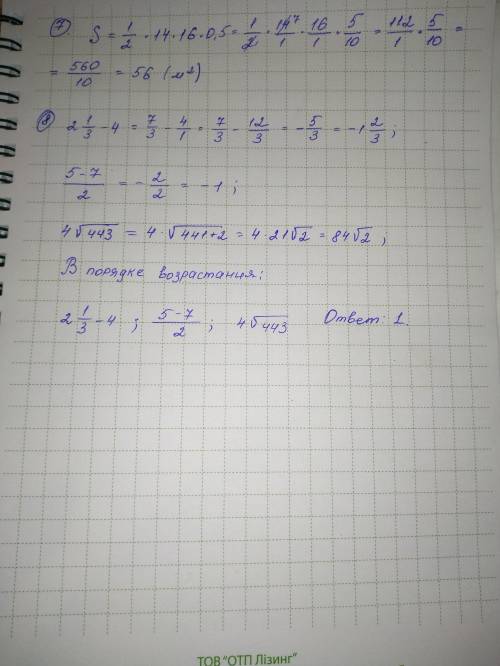 ⑦ S = 1/2 · 14 · 16 · 0,5 = 1/2 · 14⁷/1 · 16/1 · 5/10 = 112/1 · 5/10 =
= 560/10 = 56 (м²)
⑧ 2 1/3 - 4 = 7/3 - 4/1 = 7/3 - 12/3 = - 5/3 = -1 2/3 ;
5-7/2 = - 2/2 = -1 ;
4√443 = 4 · √441+2 = 4 · 21√2 = 84√2 ;
В порядке возрастания:
2 1/3 - 4 ; 5-7/2 ; 4√443 Ответ: 1.
ТОВ "ОТП Лізинг"